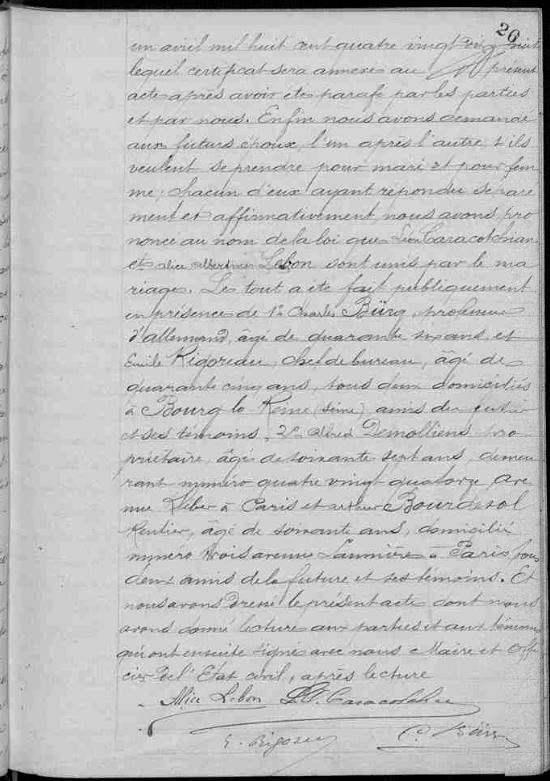 26
un avril mil huit cent quatre vingt dix huit
lequel certificat sera annexé au présent
acte après avoir été parafé par les parties
et par nous. Enfin nous avons demandé
aux futurs époux, l'un après l'autre, s'ils
veulent se prendre pour mari et pour fem
me; chacun d'eux ayant répondu séparé
ment et affirmativement, nous avons pro
noncé au nom de la loi que Léon Caracotchian
et Alice Albertine Lebon sont unis par le ma
riage. Le tout acte fait publiquement
en présence de 1º Charles Bürg, professeur
d'allemand, âgé de quarante six ans, et
Emile Rigoreau, chef de bureau, âgé de
quarante cinq ans, tous deux domiciliés
à Bourg la Reine (Seine) amis du futur
et ses témoins. 2º Alfred Demolliens pro
priétaire, âgé de soixante sept ans, demeu
rant numéro quatre vingt quatorze, ave
nue Kléber à Paris et Arthur Bourdesol
Rentier, âgé de soixante ans, domicilié
numéro trois avenue Laumière à Paris, tous
deux amis de la future et ses témoins. Et
nous avons dressé le présent acte dont nous
avons donné lecture aux parties et aux témoins
qui ont ensuite signé avec nous Maire et Offi
cier de l'Etat civil, après lecture
Alice Lebon
E. Rigoreau C. Bürg